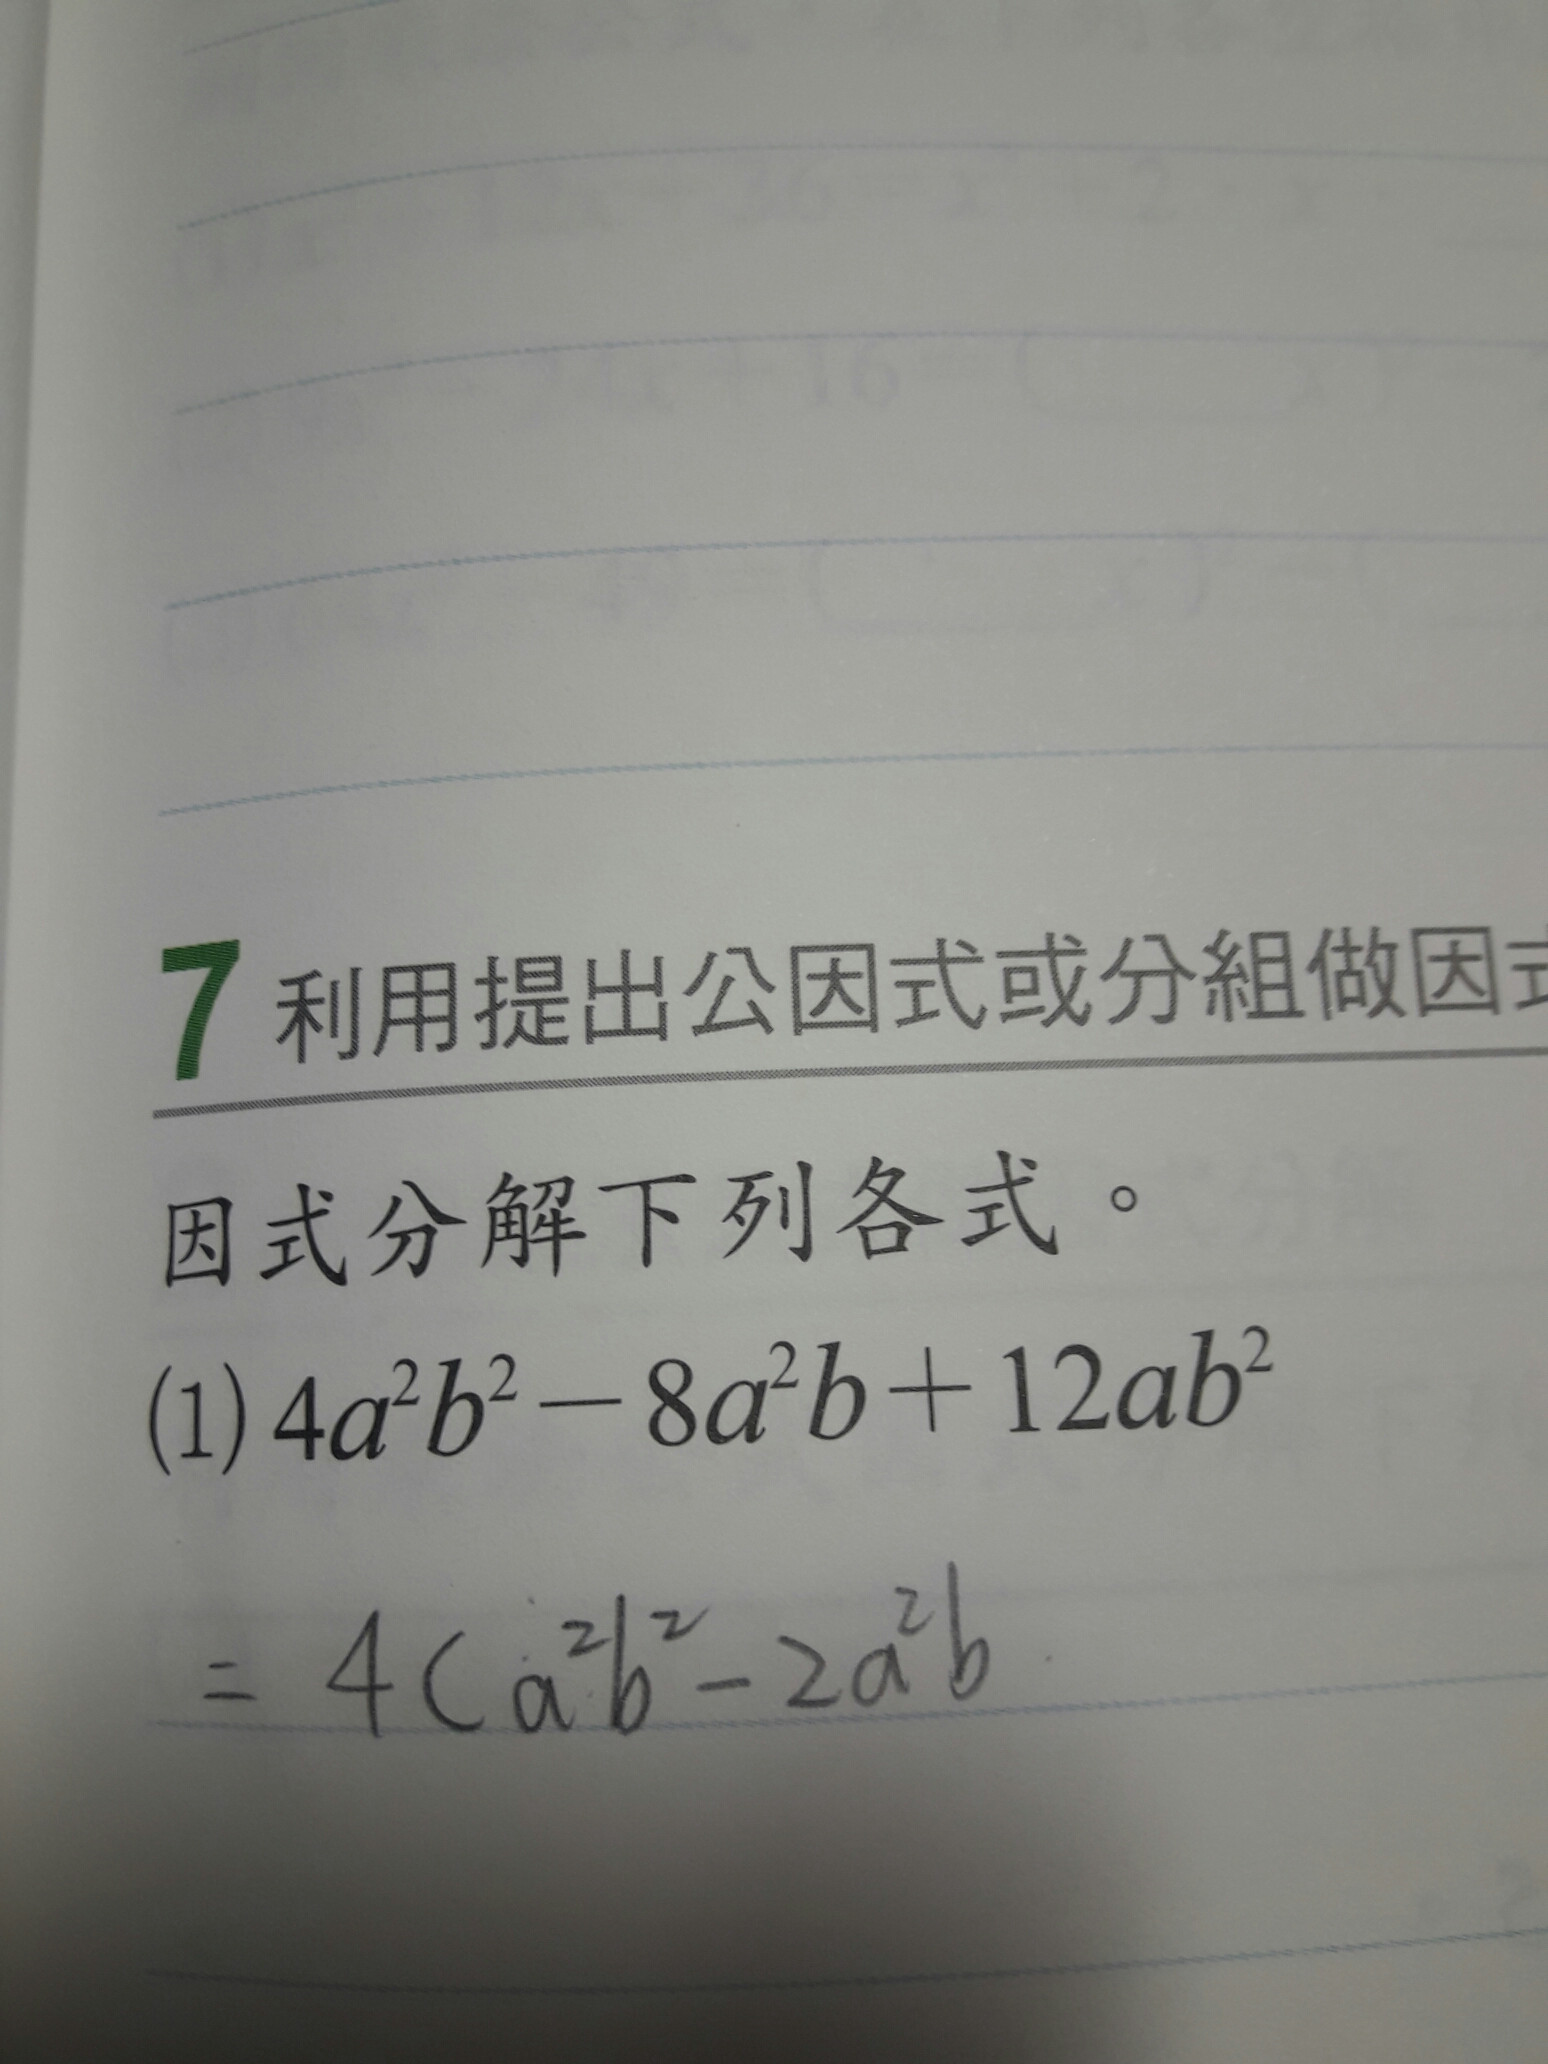 7 利用提出公因式或分組做因式
因式分解下列各式。
(1) 4a²b²－8a²b＋12ab²
= 4(a²b²－2a²b